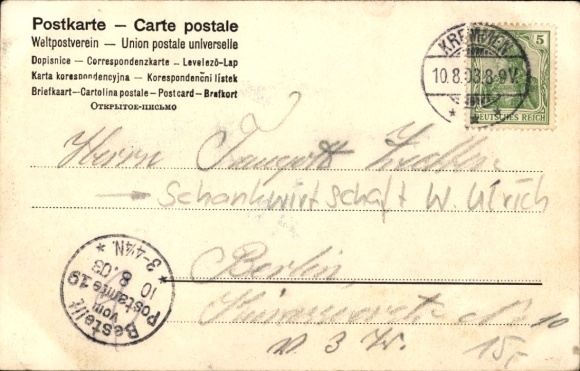 Postkarte – Carte postale
Weltpostverein – Union postale universelle
Dopisnice – Correspondenzkarte – Levelező-Lap
Karta korespondencyjna – Korespondenční lístek
Briefkaart – Cartolina postale – Postcard – Brefkort
Открытое-письмо
KREMMEN
10.8.03.8-9V.
5
DEUTSCHES REICH
Herrn
→ Schankwirtschaft W. Ulrich
Berlin
Bestellt
vom
Postamte 19
10
8.03
3-4¼N.
10
15,-